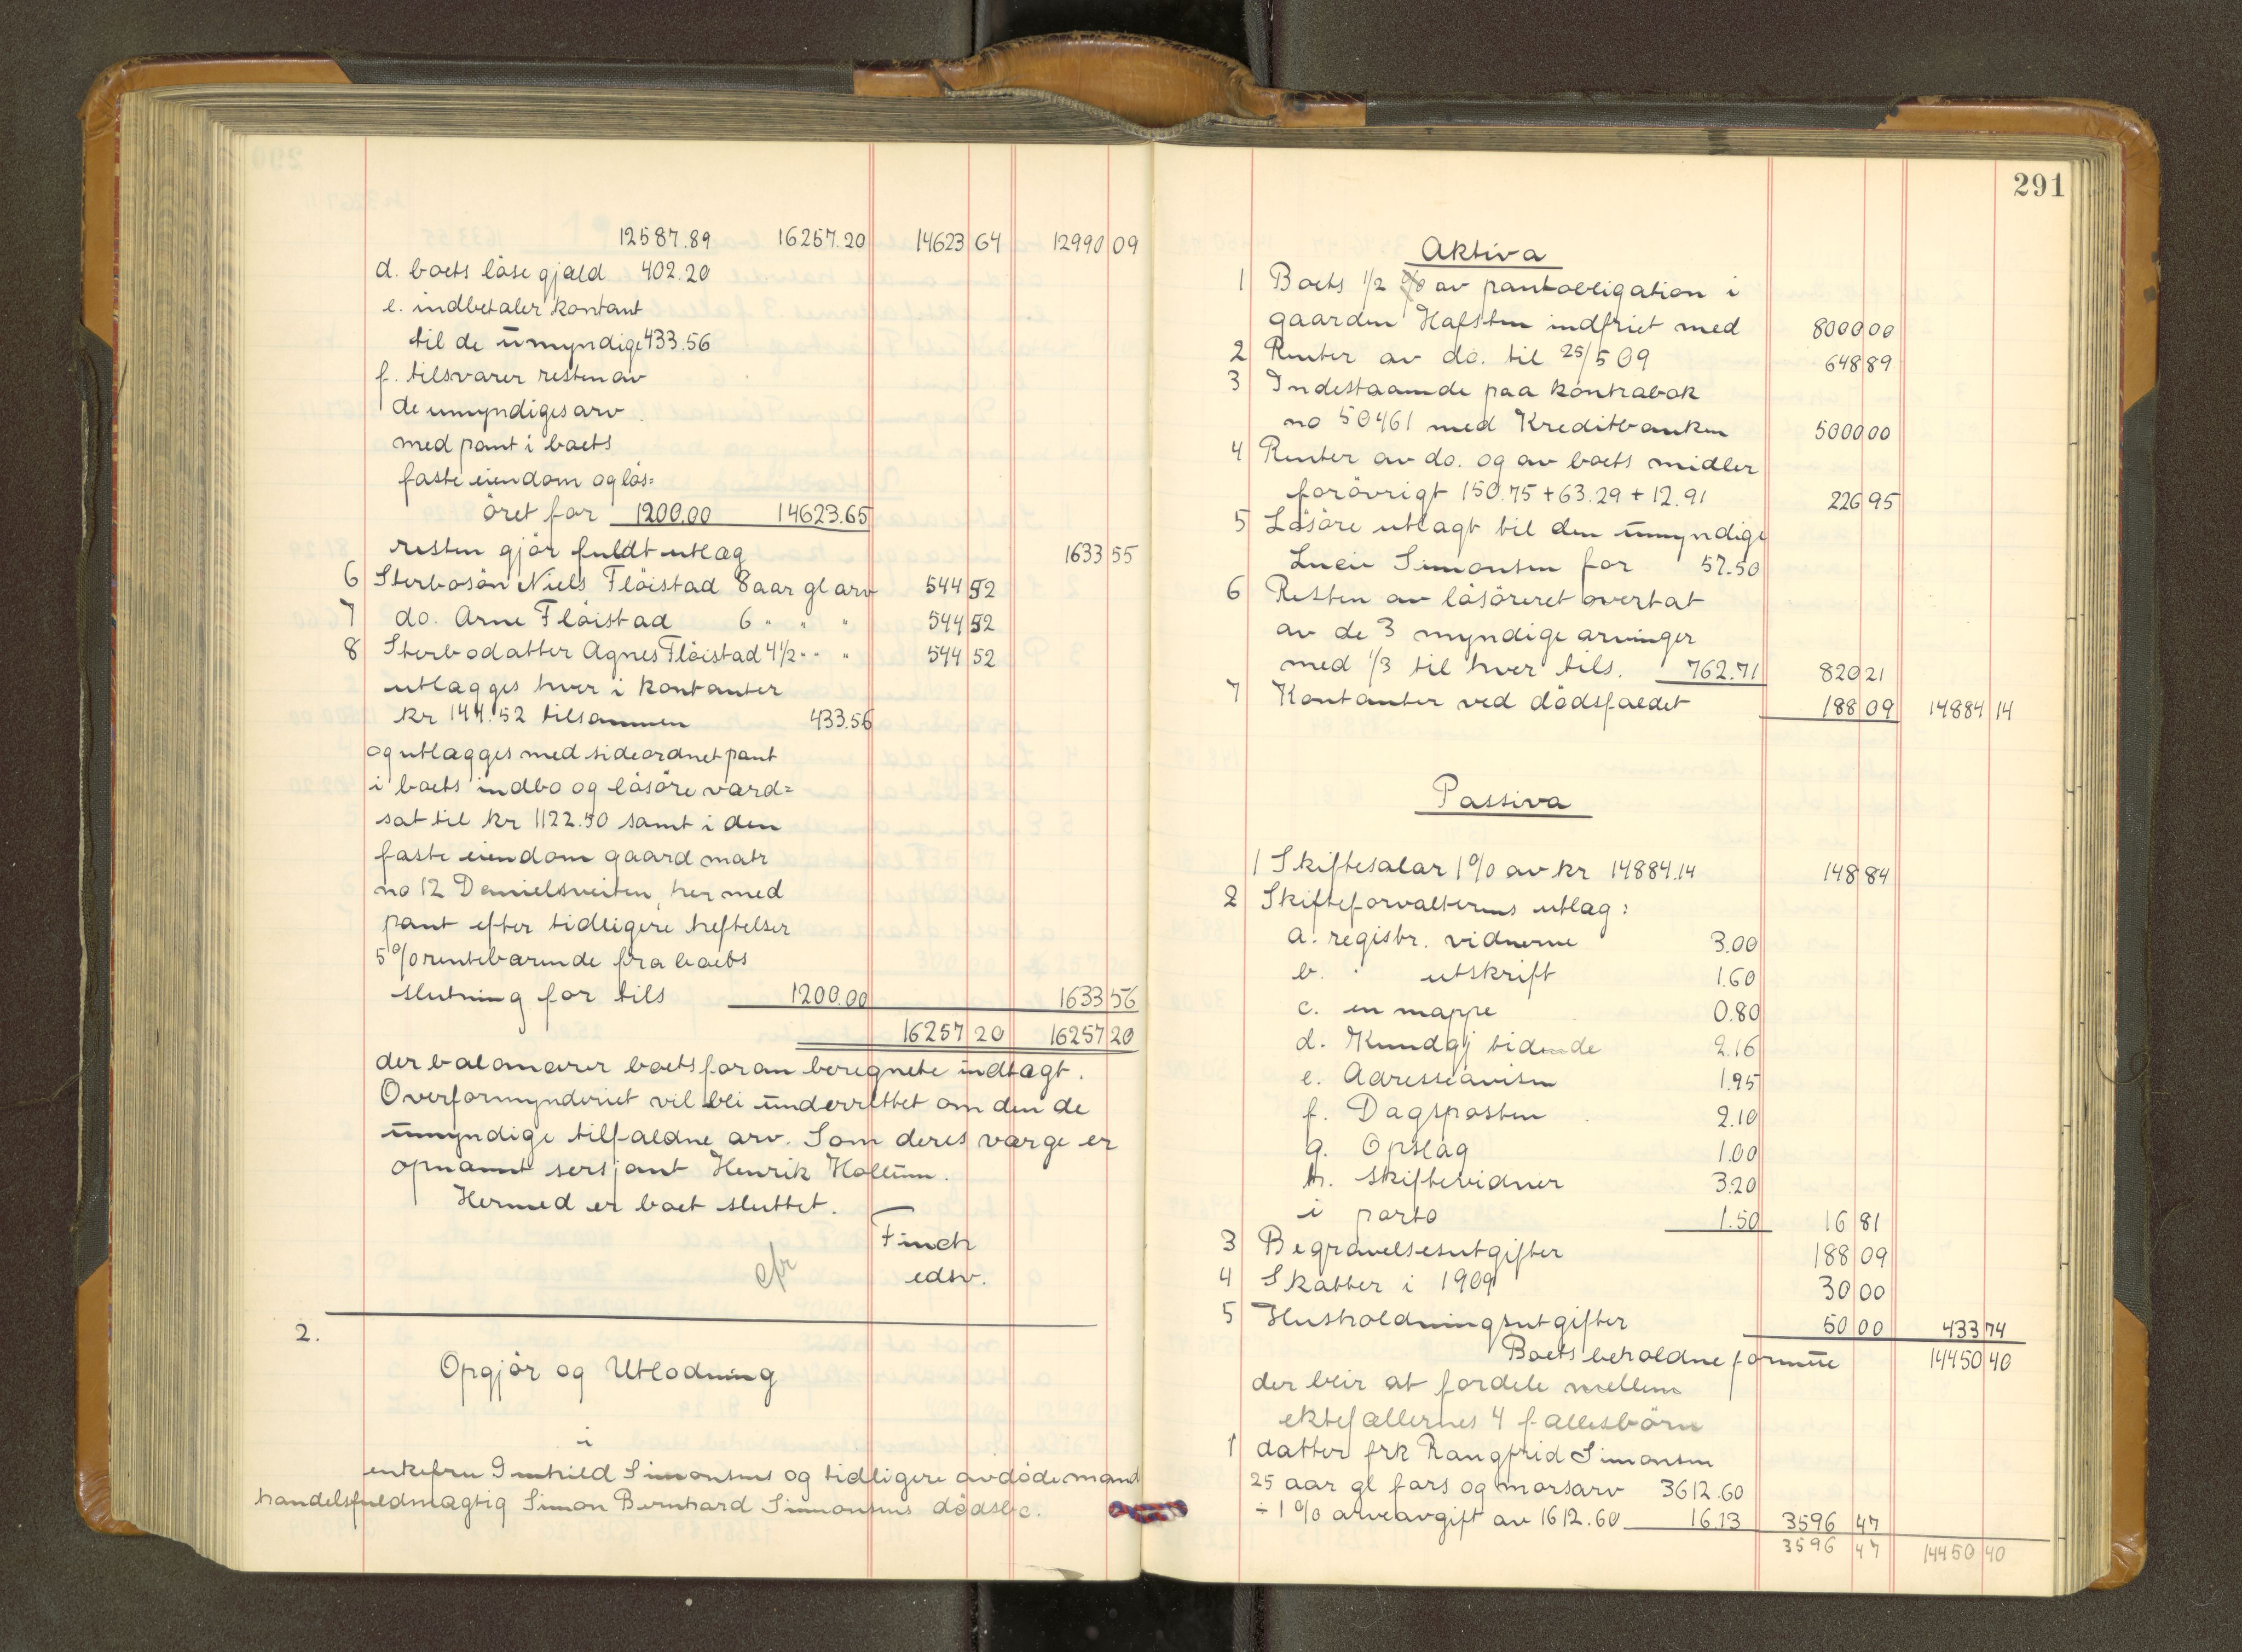 12587.89 16257.20 14623 64 12990 09
d. boets löse gjæld 402.20
e. indbetaler kontant
til de umyndige 433.56
f. tilsvarer resten av
de umyndiges arv
med pant i boets
faste eiendom og lös=
öret for 1200.00 14623.65
resten gjör fuldt utlæg 1633 55
6 Sterbosön Niels Flöistad 8 aar gl arv 544 52
7 do. Arne Flöistad 6 " " " 544 52
8 Sterbodatter Agnes Flöistad 4½ " " " 544 52
utlægges hver i kontanter
kr 144.52 tilsammen 433.56
og utlægges med sideordnet pant
i boets indbo og lösöre værd=
sat til kr 1122.50 samt i den
faste eiendom gaard matr
no 12 Danielsveiten, her med
pant efter tidligere heftelser
5% rentebærende fra boets
slutning for tils 1200.00 1633 56
16257 20 16257 20
der balanserer boets foran beregnete indtægt.
Overformynderiet vil bli underrettet om den de
umyndige tilfaldne arv. Som deres værge er
opnævnt sersjant Henrik Hollum.
Hermed er boet sluttet.
Finch
edsv.
cfr
2.
Opgjör og Utlodning
i
enkefru Inhild Simonsens og tidligere avdöde mand
handelsfuldmægtig Simon Bernhard Simonsens dödsbo.
291
Aktiva
1 Boets 1/2 % av pantobligation i
gaarden Hafsten indfriet med 8000 00
2 Renter av do. til 25/5 09 648 89
3 Indestaaende paa kontrabok
no 50461 med Kreditbanken 5000 00
4 Renter av do. og av boets midler
forövrigt 150.75 + 63.29 + 12.91 226 95
5 Lösöre utlagt til den umyndige
Lucie Simonsen for 57.50
6 Resten av lösöreret overtat
av de 3 myndige arvinger
med 1/3 til hver tils. 762.71 820 21
7 Kontanter ved dödsfaldet 188 09 14884 14
Passiva
1 Skiftesalær 1% av kr 14884.14 148 84
2 Skifteforvalterens utlæg:
a. registr. vidnerne 3.00
b. " utskrift 1.60
c. en mappe 0.80
d. Kundgj tidende 2.16
e. Adresseavisen 1.95
f. Dagsposten 2.10
g. Opslag 1.00
h. skiftevidner 3.20
i porto 1.50 16 81
3 Begravelsesutgifter 188 09
4 Skatter i 1909 30 00
5 Husholdningsutgifter 50 00 433 74
Boets beholdne formue 14450 40
der blir at fordele mellem
ektefællernes 4 fællesbörn
1 datter frk Rangfrid Simonsen
25 aar gl fars og morsarv 3612.60
÷ 1% arveavgift av 1612.60 16.13 3596 47
3596 47 14450 40